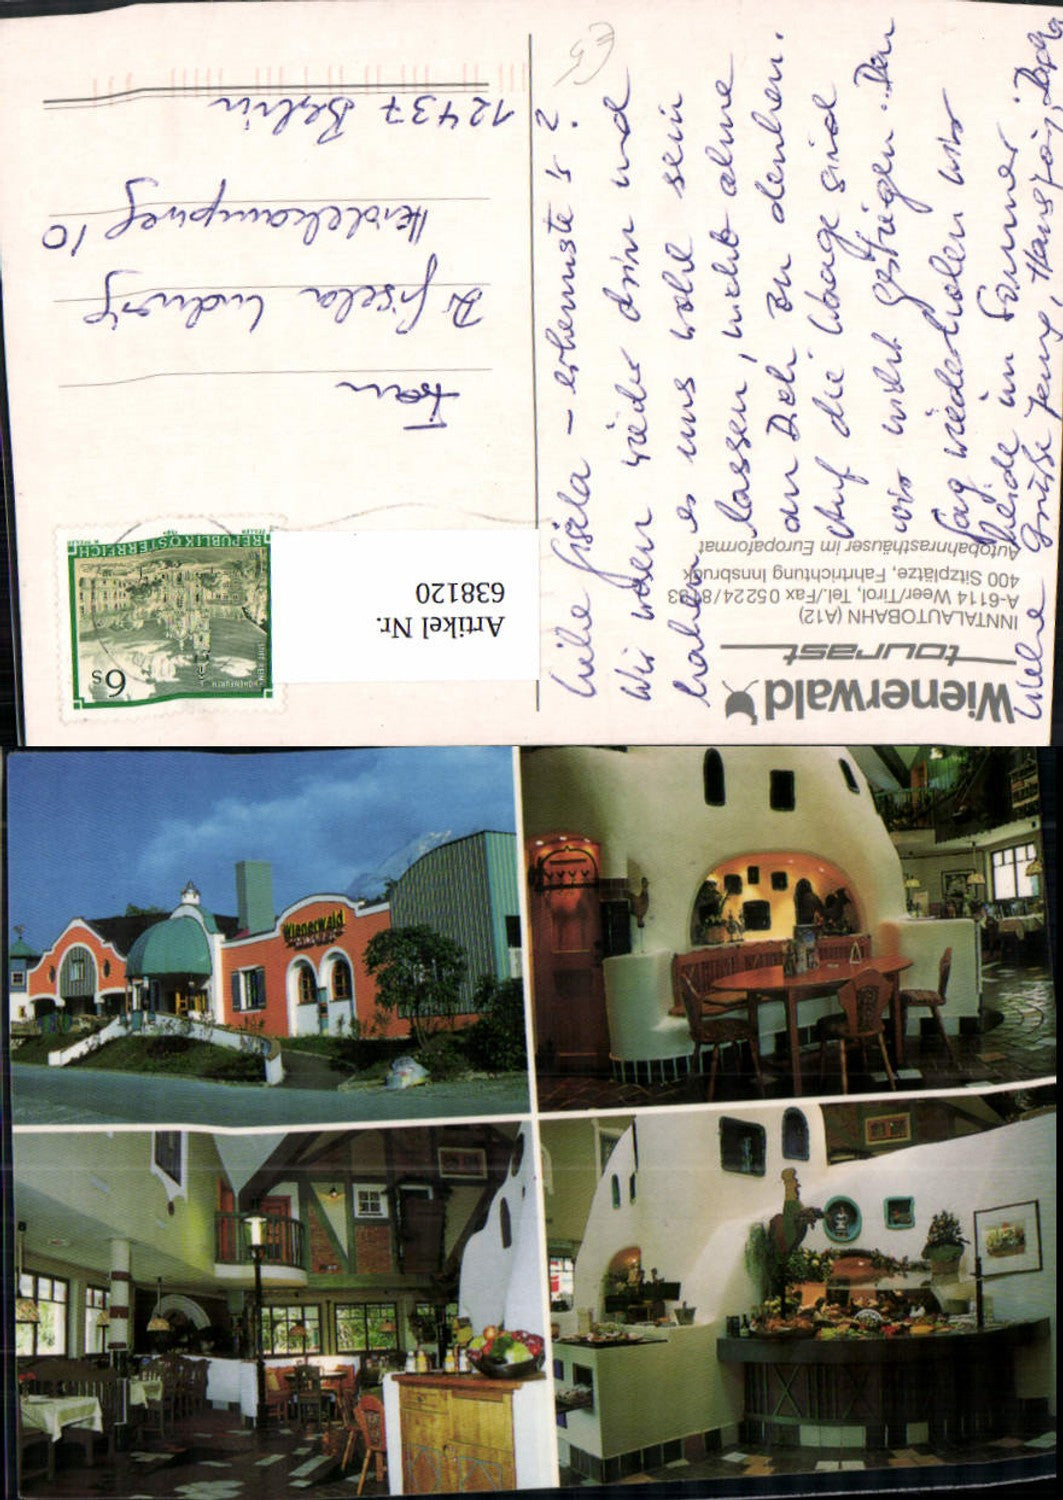 Liebe Gisela – erkennste's?
Wir waren wieder drin und
haben es uns wohl sein
lassen, nicht ohne
an Dich zu denken.
Auf die Waage sind
wir nicht gestiegen. Den
Tag wiederholen wir
beide im Sommer.
Liebe Grüße Jenz,
Frau
Dr Gisela Ludwig
Heidekampweg 10
12437 Berlin
Artikel Nr.
638120
REPUBLIK ÖSTERREICH
6s
STIFT REIN-
HOHENFURTH
Wienerwald
tourast
INNTALAUTOBAHN (A12)
A-6114 Weer/Tirol, Tel./Fax 05224/8183
400 Sitzplätze, Fahrtrichtung Innsbruck
Autobahnrasthäuser im Europaformat
Wienerwald